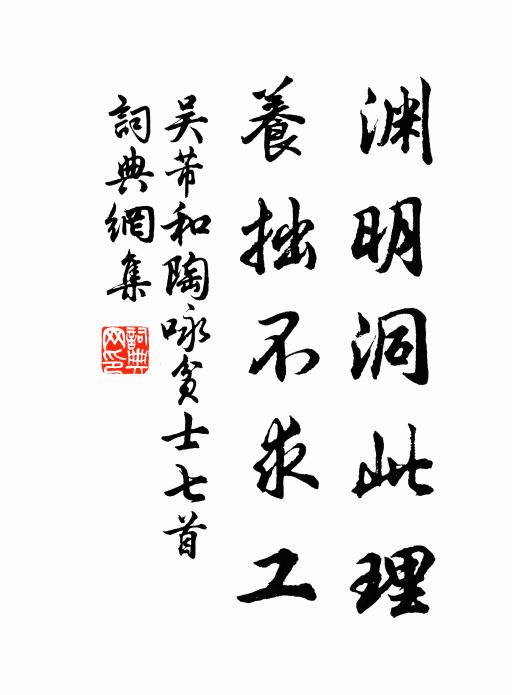 渊明洞此理
養拙不求工
吴芾和陶咏贫士七首
詞典網集
詞典网印